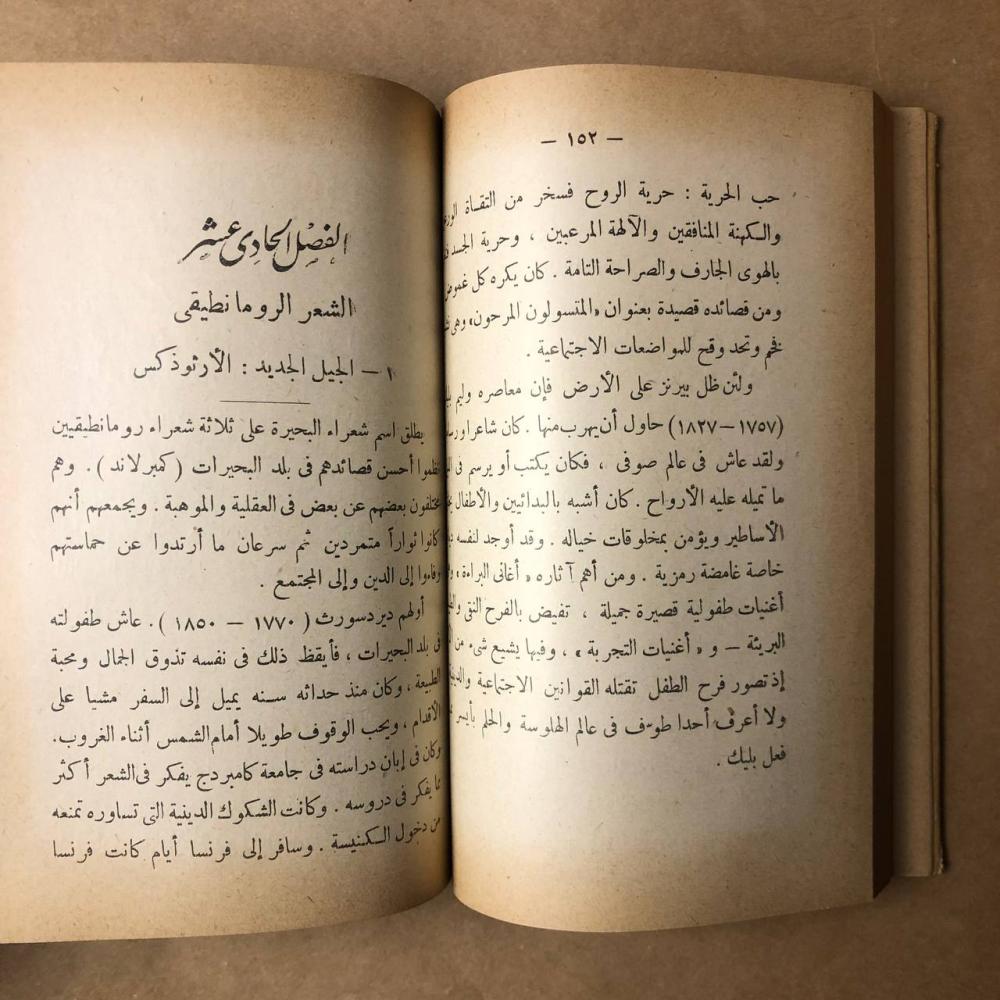 — ١٥٢ —
حب الحرية : حرية الروح فسخر من التقاة
والكهنة المنافقين والآلهة المرعبين ، وحرية الجسد
بالهوى الجارف والصراحة التامة . كان يكره كل غموض
ومن قصائده قصيدة بعنوان «المتسولون المرحون» وهى
فخم وتحد وقح للمواضعات الاجتماعية .
ولئن ظل بيرنز على الأرض فإن معاصره وليم
(١٧٥٧ – ١٨٢٧) حاول أن يهرب منها . كان شاعرا
ولقد عاش فى عالم صوفى ، فكان يكتب أو يرسم فى
ما تمليه عليه الأرواح . كان أشبه بالبدائيين والأطفال
الأساطير ويؤمن بمخلوقات خياله . وقد أوجد لنفسه
خاصة غامضة رمزية . ومن أهم آثاره « أغانى البراءة »
أغنيات طفولية قصيرة جميلة ، تفيض بالفرح النقى
البريئة – و « أغنيات التجربة » ، وفيها يشيع شىء من
إذ تصور فرح الطفل تقتله القوانين الاجتماعية
ولا أعرف أحدا طوف فى عالم الهلوسة والحلم بأيسر
فعل بليك .
الفصل الحادى عشر
الشعر الرومانطيقى
١ – الجيل الجديد : الأرثوذكس
يطلق اسم شعراء البحيرة على ثلاثة شعراء رومانطيقيين
نظموا أحسن قصائدهم فى بلد البحيرات ( كمبرلاند ) . وهم
مختلفون بعضهم عن بعض فى العقلية والموهبة . ويجمعهم أنهم
كانوا ثواراً متمردين ثم سرعان ما أرتدوا عن حماستهم
وفاءوا إلى الدين وإلى المجتمع .
أولهم ديردسورث ( ١٧٧٠ – ١٨٥٠ ) . عاش طفولته
فى بلد البحيرات ، فأيقظ ذلك فى نفسه تذوق الجمال ومحبة
الطبيعة ، وكان منذ حداثه سنه يميل إلى السفر مشيا على
الأقدام ، ويحب الوقوف طويلا أمام الشمس أثناء الغروب .
وكان فى إبان دراسته فى جامعة كامبردج يفكر فى الشعر أكثر
مما يفكر فى دروسه . وكانت الشكوك الدينية التى تساوره تمنعه
من دخول الكنيسة . وسافر إلى فرنسا أيام كانت فرنسا